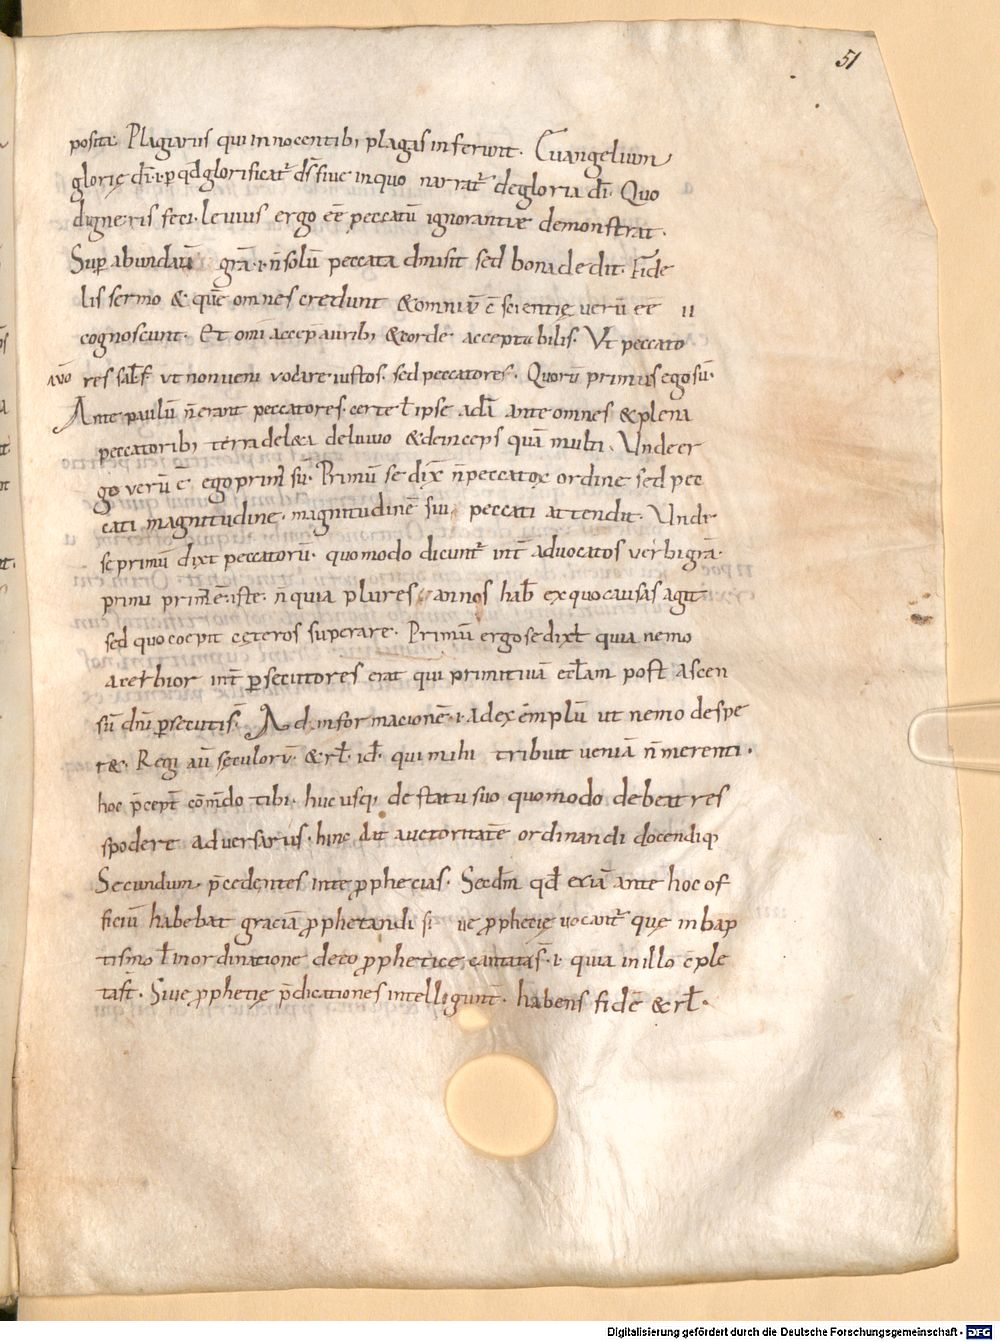 51
positæ. Plagiariis qui innocentibꝫ plagas inferunt. Euangelium
glorię dī. i. ꝑ qd̄ glorificat᷑ d̄s siue in quo narrat᷑ de gloria dī. Quo
digneris feci. leuius ergo eē peccatū ignorantiæ demonstrat.
Suꝑabundau͞ gr̄a. i. n̄ solū peccata dimisit sed bona dedit. Fide
lis sermo & quē omnes credunt & omniu͞ ē scientię uerū eē
cognoscunt. Et om̄i accep̄ auribꝫ & corde acceptabilis. Vt peccato
res salꝉ f̄ ut non ueni uocare iustos. sed peccatores. Quorū primus ego sū.
Ante paulū n̄ erant peccatores. certe ł ipse adā ante omnes & plena
peccatoribꝫ terra del&a deluuio & deinceps quā multi. Vnde er
go uerū ē ego prim᷒ sū. Primū se dix̄ n̄ peccatoꝝ ordine sed pec
cati magnitudine. magnitudinē sui peccati attendit. Vnde
se primū dixt peccatorū. quomodo dicunt᷑ int̄ aduocatos uerbi gr̄a.
primū ē iste. n̄ quia plures annos hab̄ ex quo causas agit
sed quo coepit cęteros superare. Primū ergo se dix̄ quia nemo
acerbior int̄ ꝑsecutores erat qui primitiuā ecłam post ascen
sū dn̄i ꝑsecutus ̄. Ad informacionē. i. ad exemplū ut nemo despe
r&. Regi aū seculoꝝ. & rł. id ē. qui mihi tribuit ueniā n̄ merenti.
hoc p̄cept̄ cōm̄do tibi. huc usqꝫ de statu suo quomodo debeat res
pōdere aduersariis. hinc dat auctoritatē ordinandi docendiqꝫ
Secundum p̄cedentes in te ꝓphecias. Secdm̄ qd̄ eciā ante hoc of
ficiū habebat graciā ꝓphetandi siue ꝓphetię uocant᷑ que in bap
tismo ł in ordinatione de eo ꝓphetice cantatas̄. i. quia in illo cōple
tas̄t. Siue ꝓphetię p̄dicationes intelligunt᷑. habens fidē & rł.
Digitalisierung gefördert durch die Deutsche Forschungsgemeinschaft - DFG